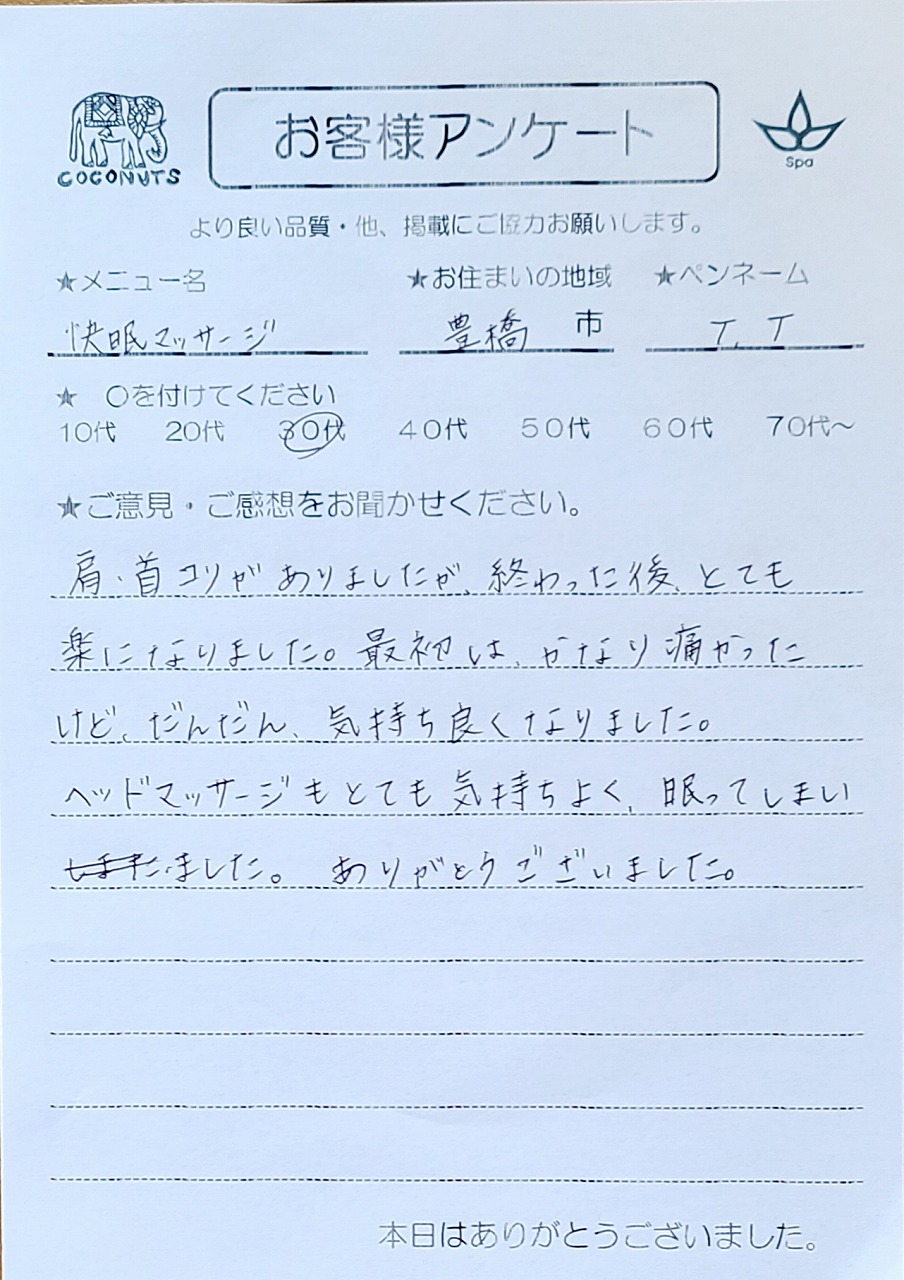 COCONUTS
お客様アンケート
Spa
より良い品質・他、掲載にご協力お願いします。
★メニュー名 ★お住まいの地域 ★ペンネーム
快眠マッサージ 豊橋 市 T.T
★ 〇を付けてください
10代 20代 30代 40代 50代 60代 70代～
★ご意見・ご感想をお聞かせください。
肩・首コリがありましたが、終わった後、とても
楽になりました。最初は、かなり痛かった
けど、だんだん、気持ち良くなりました。
ヘッドマッサージもとても気持ちよく、眠ってしまい
ました。 ありがとうございました。
本日はありがとうございました。